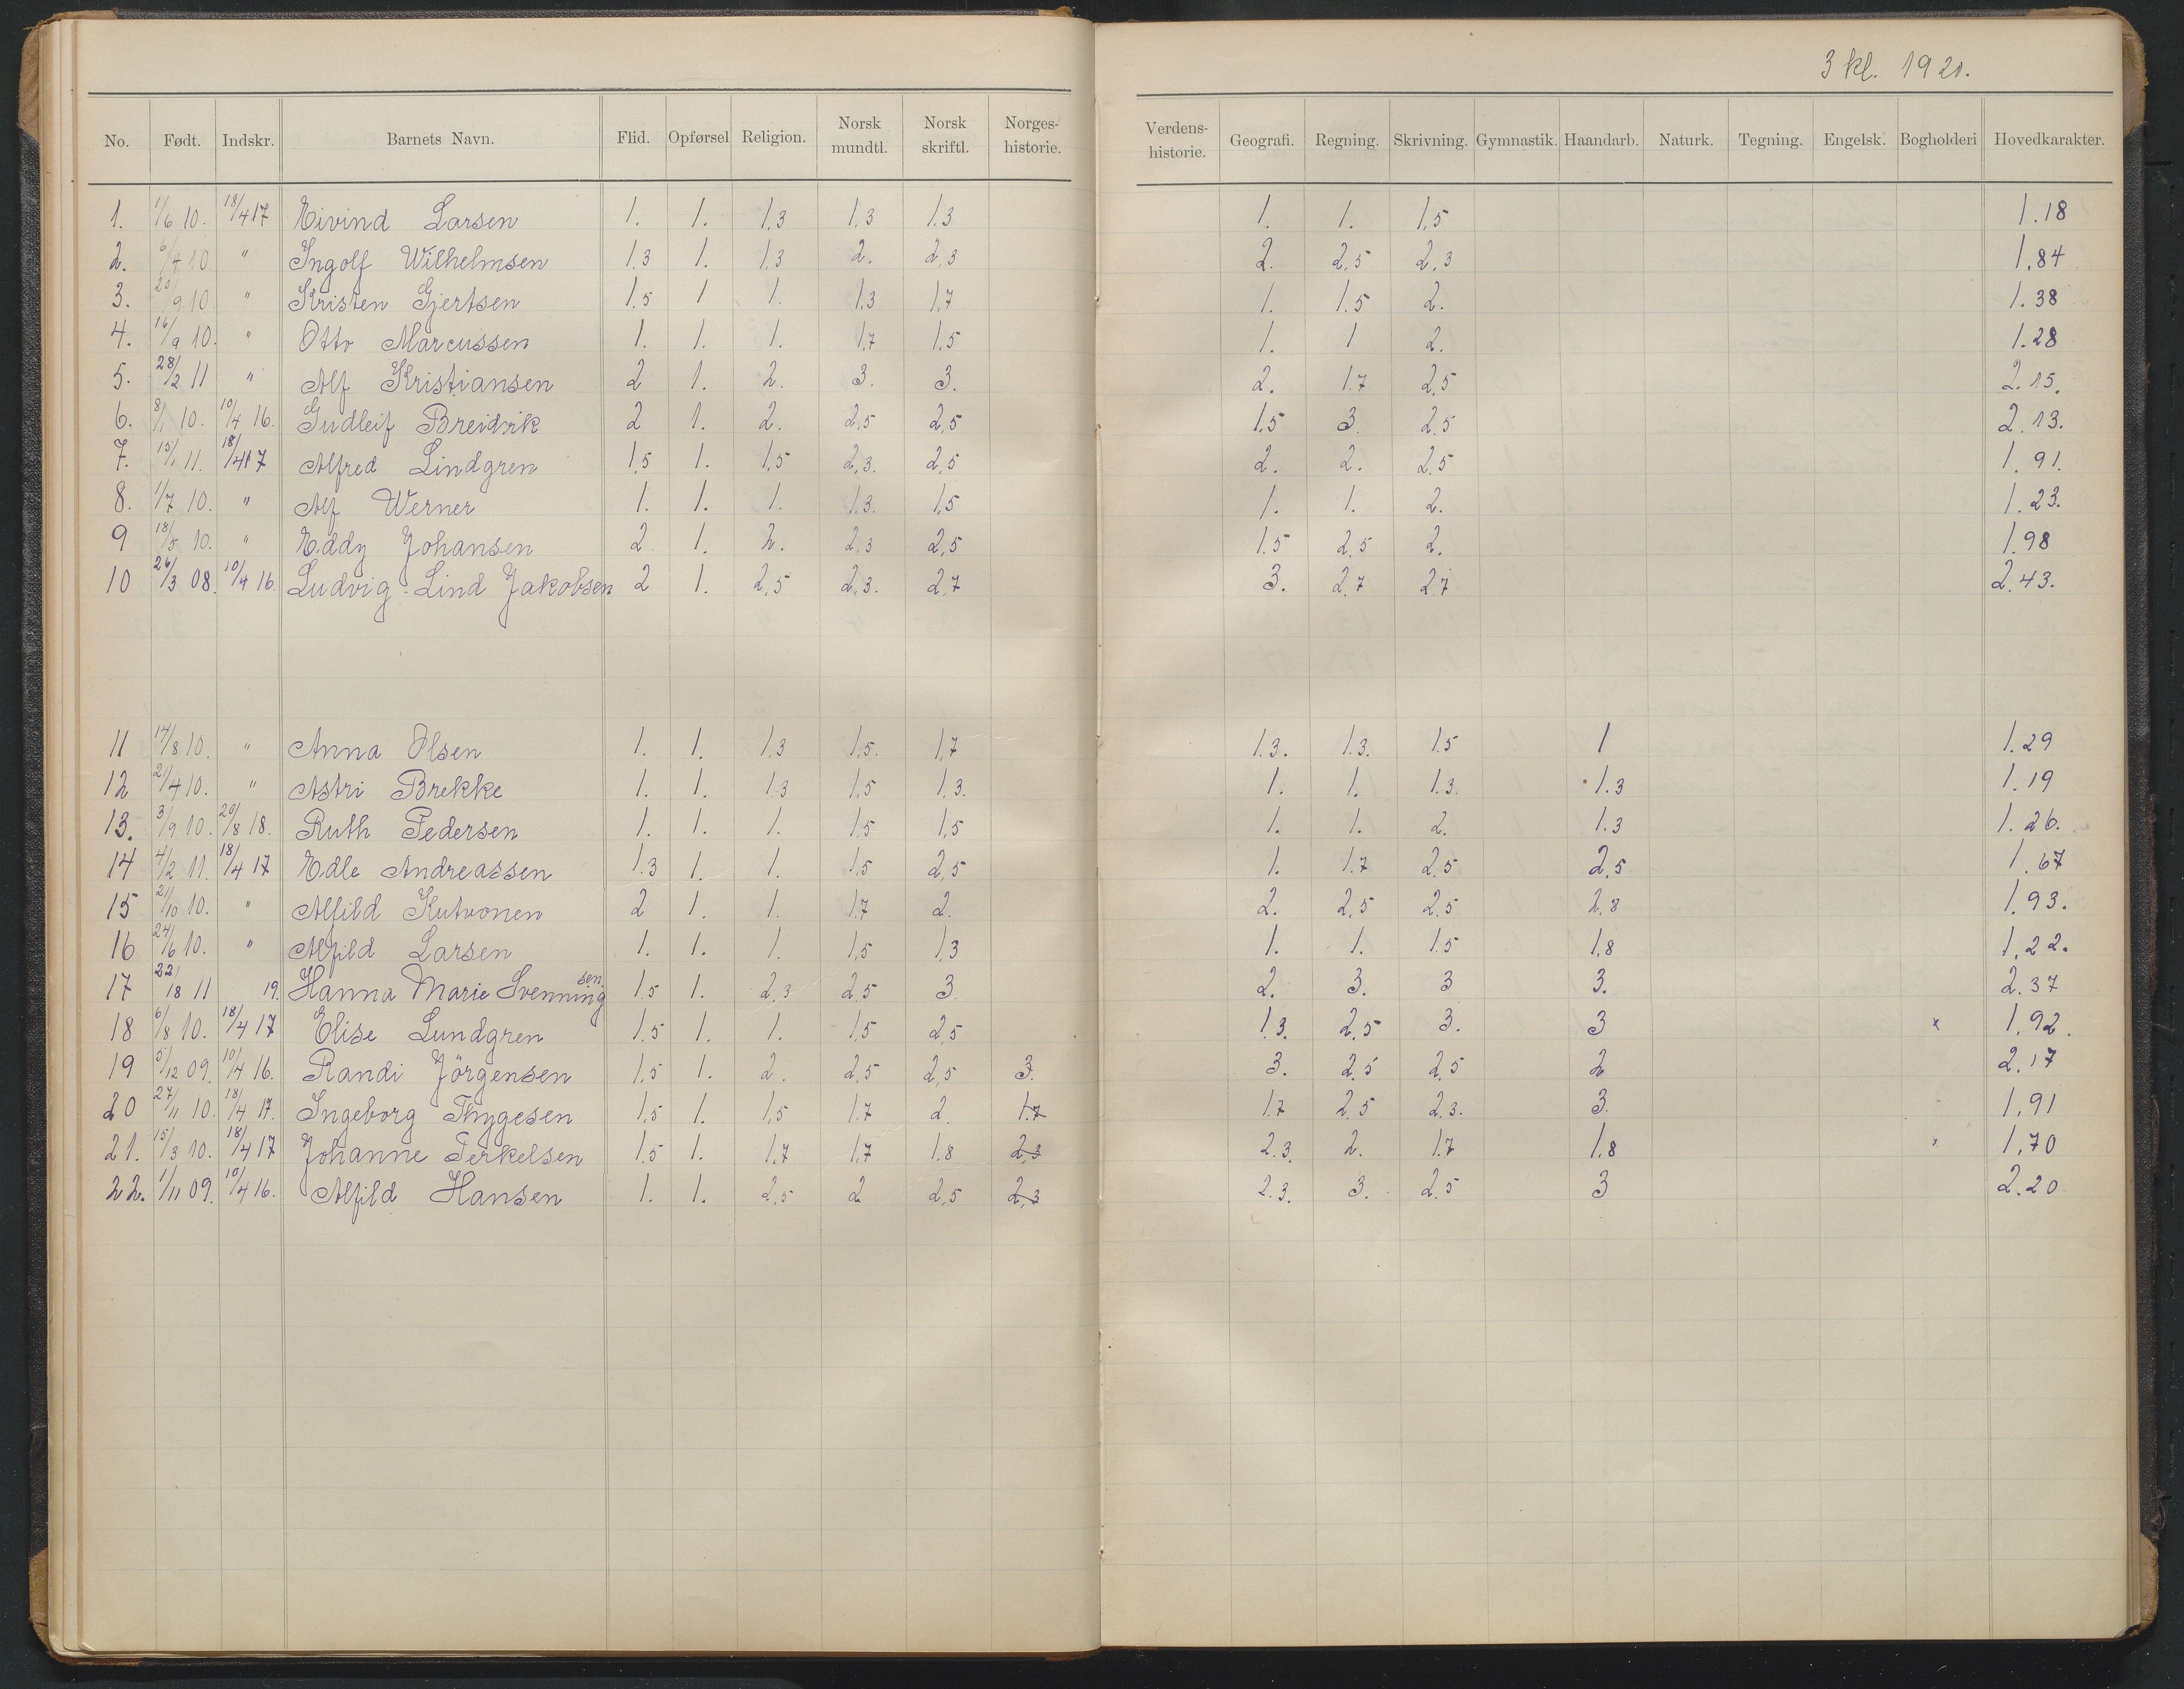 3 kl. 1921.
No. Født. Indskr. Barnets Navn. Flid. Opførsel Religion. Norsk mundtl. Norsk skriftl. Norges-historie. Verdens-historie. Geografi. Regning. Skrivning. Gymnastik. Haandarb. Naturk. Tegning. Engelsk. Bogholderi Hovedkarakter.
1. 1/6 10. 18/4 17 Eivind Larsen 1. 1. 1,3 1,3 1,3 1. 1. 1,5 1.18
2. 6/4 10 " Ingolf Wilhelmsen 1.3 1. 1,3 2. 2,3 2. 2,5 2,3 1.84
3. 20/9 10 " Kristen Gjertsen 1.5 1 1. 1.3 1,7 1. 1.5 2. 1.38
4. 16/9 10. " Otto Marcussen 1. 1. 1. 1,7 1,5 1. 1 2. 1.28
5. 28/2 11 " Alf Kristiansen 2 1. 2. 3. 3. 2. 1.7 2,5 2.15.
6. 8/1 10. 10/4 16. Gudleif Breidvik 2 1. 2. 2,5 2,5 1.5 3. 2.5 2.13.
7. 15/1 11. 18/4 17 Alfred Lindgren 1,5 1. 1,5 2,3. 2,5 2. 2. 2.5 1.91.
8. 1/7 10. " Alf Werner 1. 1. 1. 1.3. 1,5 1. 1. 2. 1.23.
9 18/5 10. " Eddy Johansen 2 1. 2. 2,3 2,5 1.5 2.5 2. 1.98
10 26/3 08. 10/4 16. Ludvig Lind Jakobsen 2 1. 2,5 2,3. 2,7 3. 2.7 2.7 2.43.
11 14/8 10. " Anna Olsen 1. 1. 1,3 1,5. 1,7 1.3. 1.3. 1.5 1 1.29
12 21/4 10. " Astri Brekke 1. 1. 1.3 1,5 1,3. 1. 1. 1.3. 1.3 1.19
13. 3/9 10. 20/8 18. Ruth Pedersen 1. 1. 1. 1,5 1,5 1. 1. 2. 1.3 1.26.
14 4/2 11. 18/4 17 Edle Andreassen 1.3 1. 1. 1,5 2,5 1. 1.7 2.5 2.5 1.67
15 21/10 10. " Alfild Kutvonen 2 1. 1. 1.7 2. 2. 2,5 2.5 2,8 1.93.
16 24/6 10. " Alfild Larsen 1. 1. 1. 1,5 1,3 1. 1. 1.5 1,8 1.22.
17 22/18 11 19. Hanna Marie Svenningsen 1.5 1. 2,3 2,5 3. 2. 3. 3 3. 2.37
18 6/8 10. 18/4 17 Elise Lundgren 1.5 1. 1. 1,5 2,5 1.3. 2.5 3. 3 x 1.92.
19 5/12 09. 10/4 16. Randi Jörgensen 1,5 1. 2. 2,5 2,5 3. 3. 2.5 2.5 2 2.17
20 27/11 10. 18/4 17. Ingeborg Thygesen 1,5 1. 1,5 1.7 2. 1.7 1.7 2.5 2.3. 3. 1.91
21. 15/3 10. 18/4 17 Johanne Terkelsen 1,5 1. 1,7 1,7 1,8 2,3 2.3. 2. 1.7 1.8 x 1.70
22. 1/11 09. 10/4 16. Alfild Hansen 1. 1. 2,5 2 2,5 2,3 2.3. 3. 2.5 3 2.20